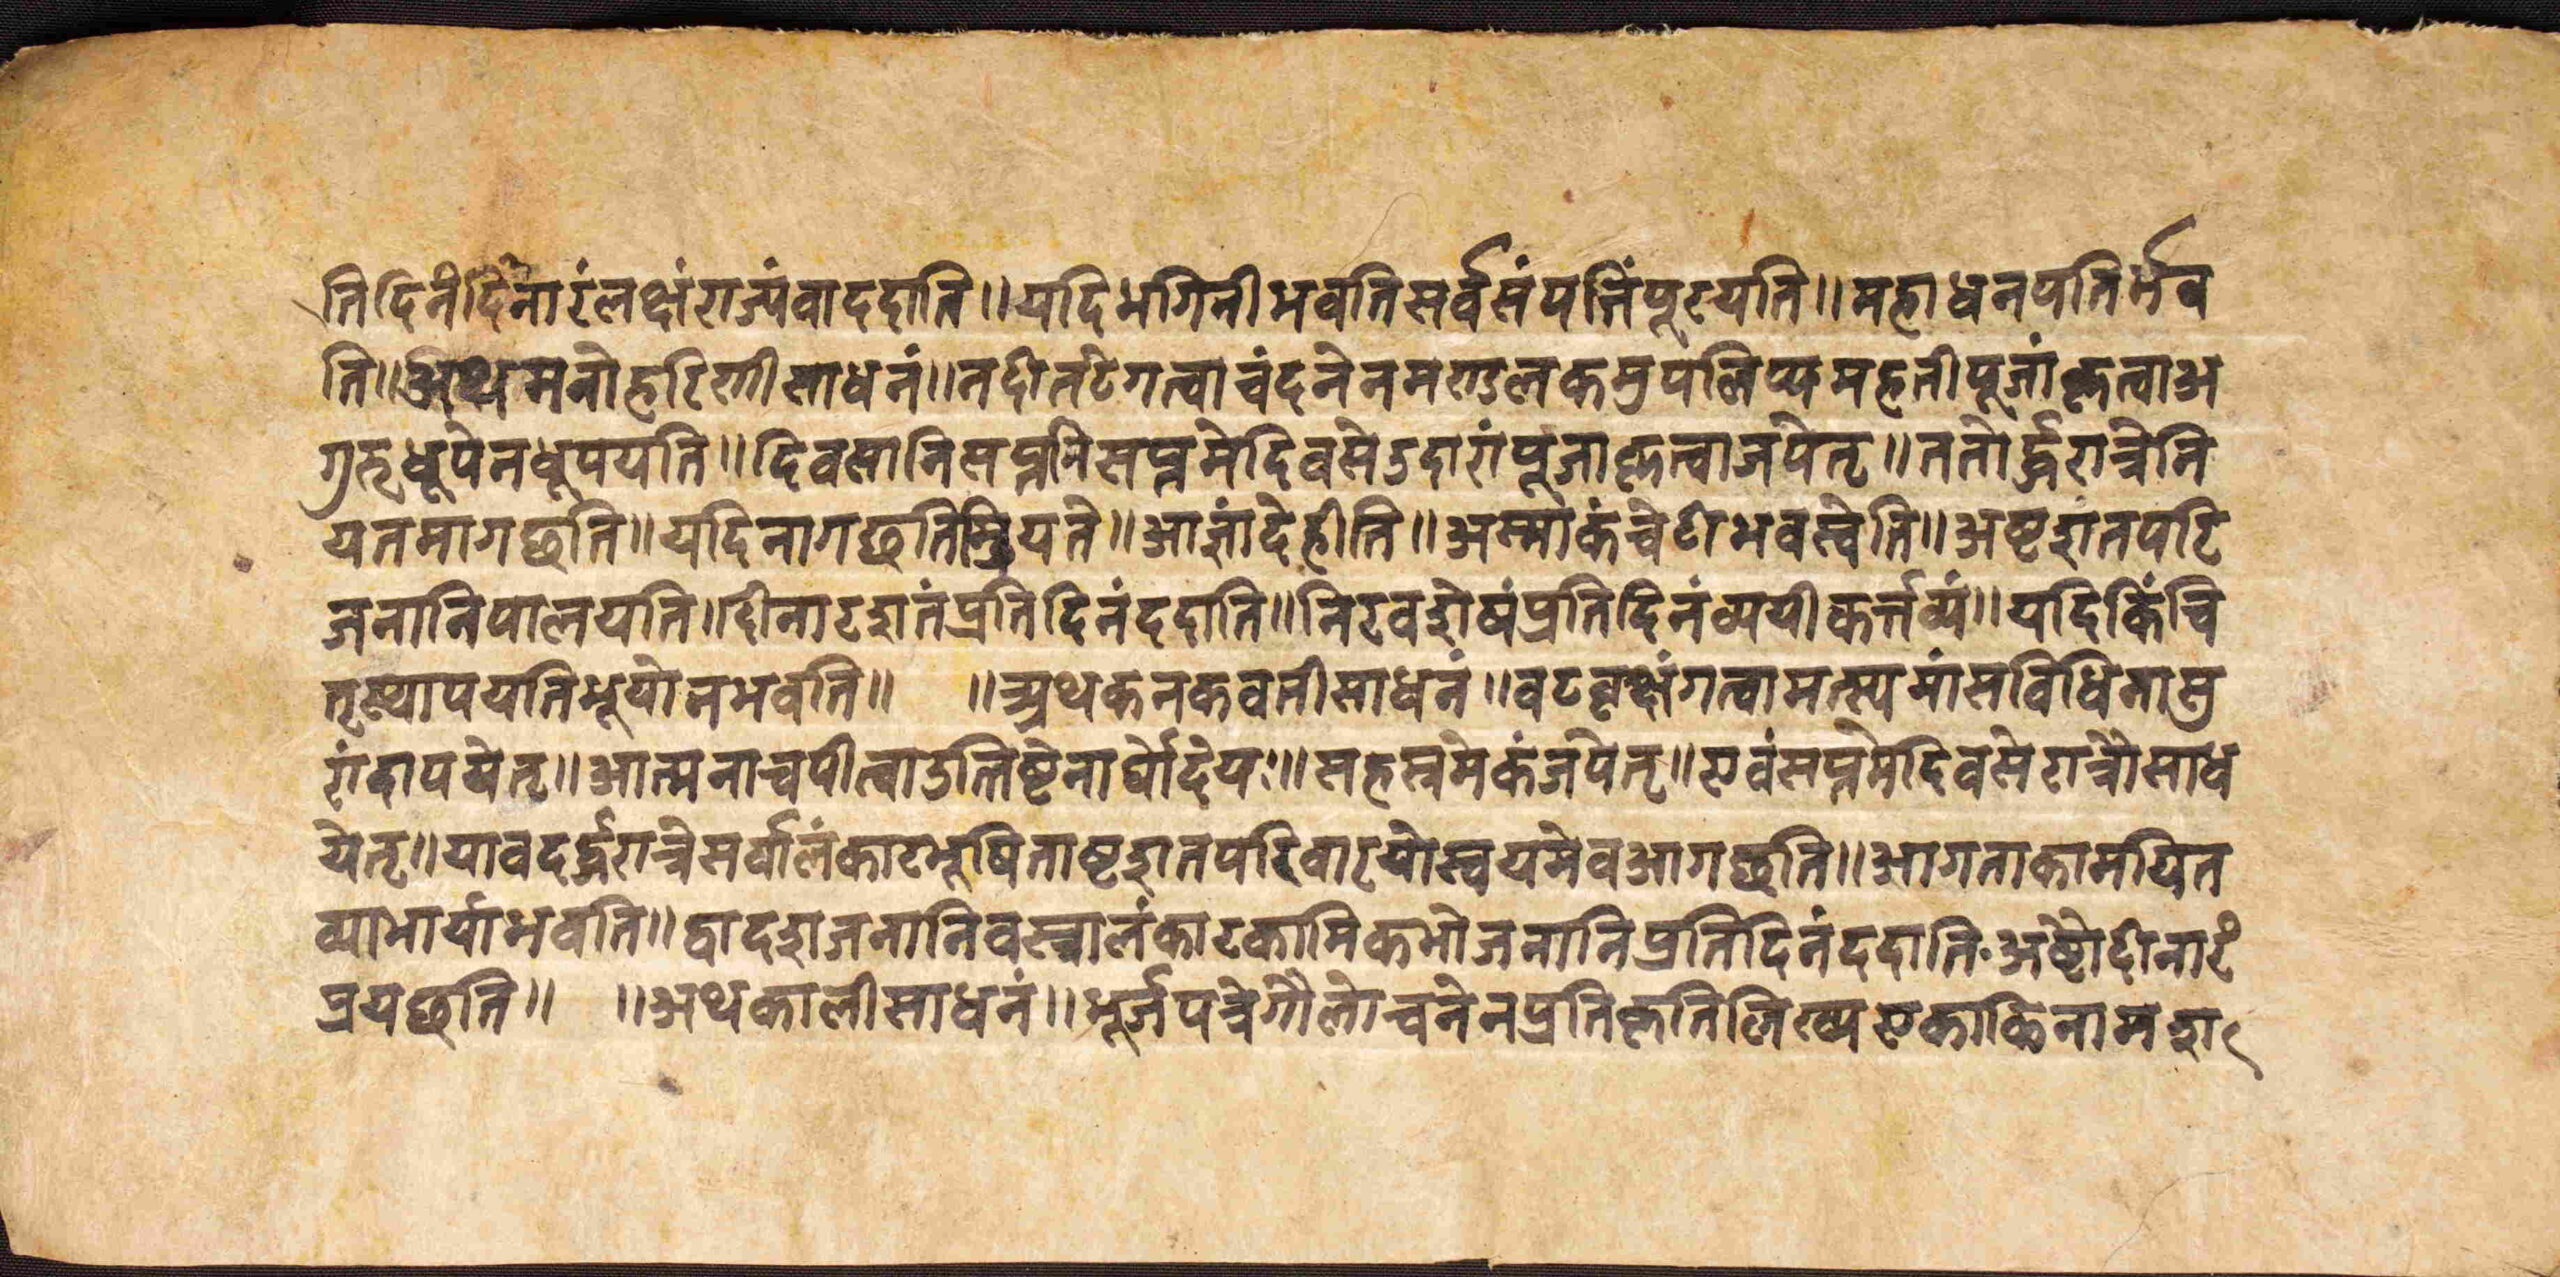 तिदिनंदिनारंलक्षंराज्यंवाददाति॥यदिभगिनीभवतिसर्वसंपत्तिंपूरयति॥महाधनपतिर्भव
ति॥अथमनोहरिणीसाधनं॥नदीतटेगत्वाचंदनेनमण्डलकमुपलिप्यमहतीपूजांकृत्वाअ
गुरुधूपेनधूपयति॥दिवसानिसप्तनिसप्तमेदिवसेऽदारांपूजाकृत्वाजपेत्॥ततोर्द्धरात्रेनि
यतमागछति॥यदिनागछतिम्रियते॥आज्ञांदेहीति॥अस्माकंचेटीभवस्वेति॥अष्टशतपरि
जनानिपालयति॥दीनारशतंप्रतिदिनंददाति॥निरवशेषंप्रतिदिनंव्ययीकर्त्तव्यं॥यदिकिंचि
त्स्थापयतिभूयोनभवति॥ ॥अथकनकवतीसाधनं॥वटवृक्षंगत्वामत्स्यमांसविधिनासु
रांदापयेत्॥आत्मनाचपीत्वाउत्तिष्टेनार्घोदेयः॥सहस्रमेकंजपेत्॥एवंसप्तमेदिवसेरात्रौसाध
येत्॥यावदर्द्धरात्रेसर्वालंकारभूषिताष्टशतपरिवारयोस्वयमेवआगछति॥आगताकामयित
व्याभार्याभवति॥द्वादशजनानिवस्त्रालंकारकामिकभोजनानिप्रतिदिनंददाति॰अष्टौदीनारं
प्रयछति॥ ॥अथकालीसाधनं॥भूर्जपत्रेगौलोचनेनप्रतिकृतिलिख्यएकाकिनामशा